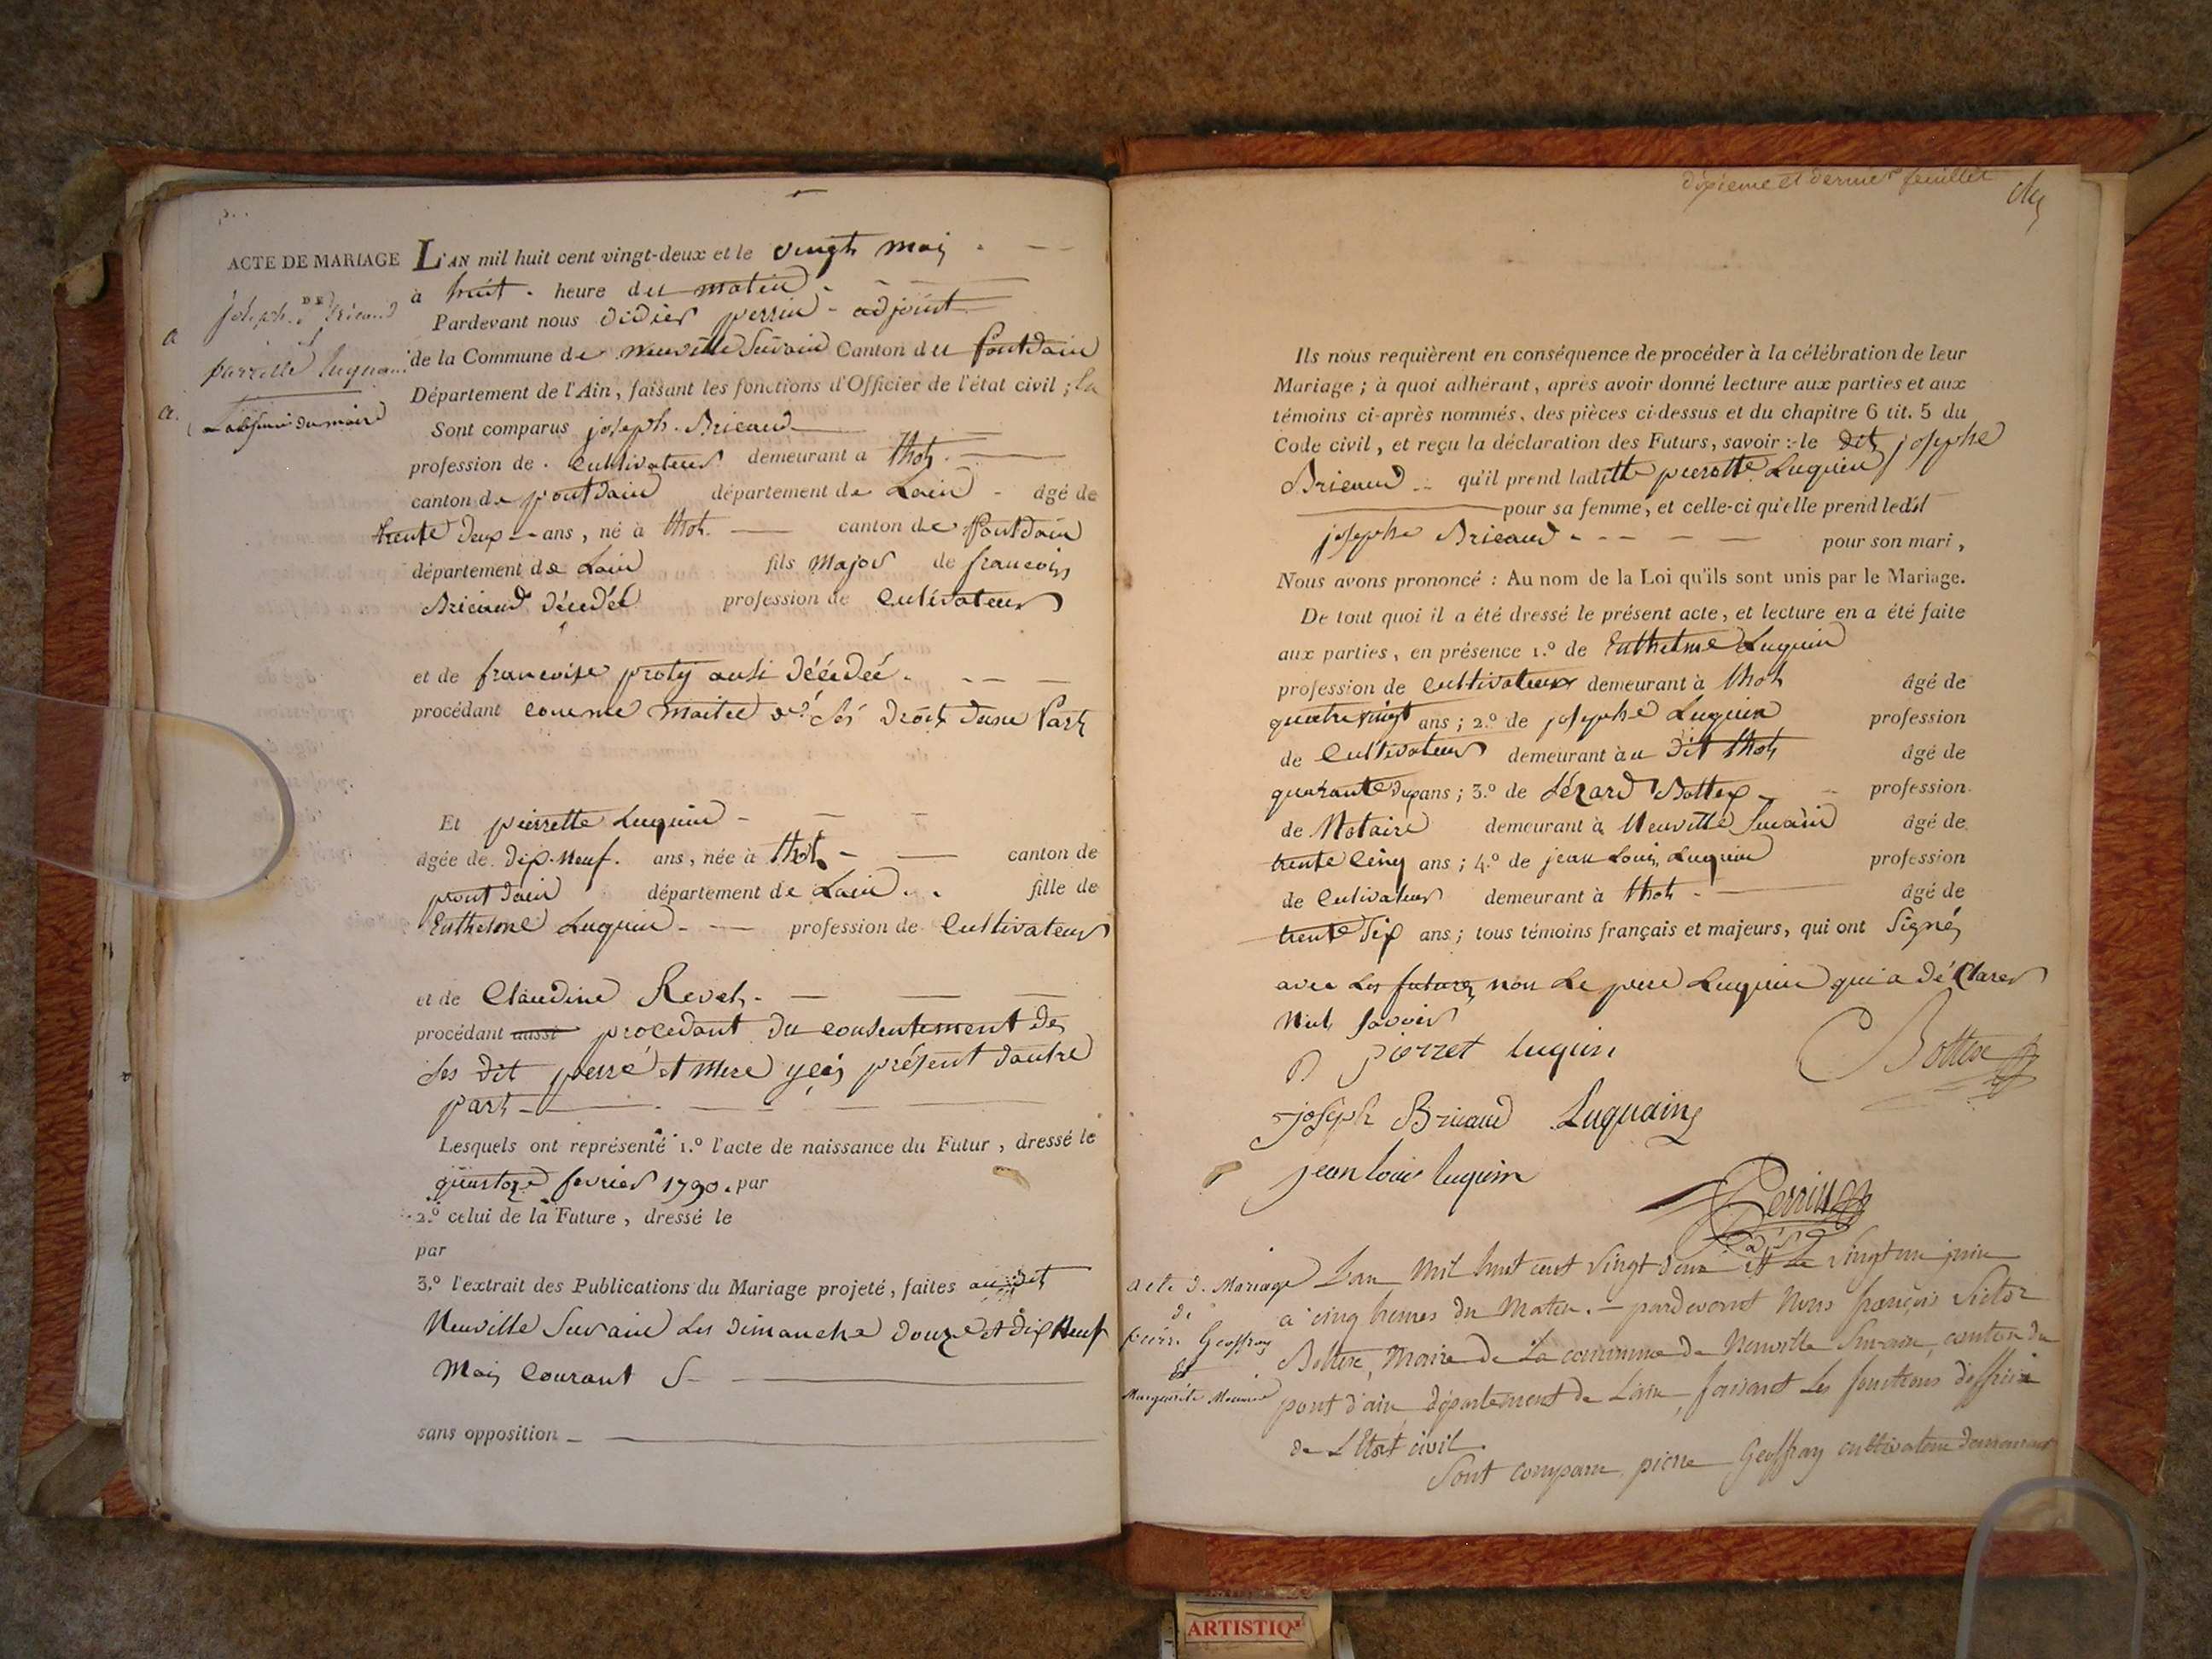 ACTE DE MARIAGE
DE
joseph Bricaud
et
pierrette luquin
a. L'absence du maire
L'AN mil huit cent vingt-deux et le vingt mai
à huit heure du matin
Pardevant nous didier perrin adjoint
de la Commune de Neuville Survain Canton du pontdain
Département de l'Ain, faisant les fonctions d'Officier de l'état civil ; a
Sont comparus joseph Bricaud
profession de cultivateur demeurant a thol
canton de pontdain département de Lain âgé de
trente deux ans, né à thol canton de Pontdain
département de Lain fils Major de francois
Bricaud décédé profession de Cultivateur
et de francoise proty ausi décédéé
procédant comme maitre de ses droit dune part
Et pierrette Luquin
âgée de dix-neuf ans, née à thol canton de
pont dain département de Lain fille de
Enthelme Luquin profession de Cultivateur
et de Claudine Revel
procédant aussi procedant du consentement de
ses dit perre et mere yçis présent dautre
part
Lesquels ont représenté 1.º l'acte de naissance du Futur, dressé le
quatorze fevrier 1790. par
2.º celui de la Future, dressé le
par
3.º l'extrait des Publications du Mariage projeté, faites au dit
Neuville Survain Les dimanche douze et dix Neuf
Mai Courant
sans opposition
dixieme et dernier feuillet
Ils nous requièrent en conséquence de procéder à la célébration de leur
Mariage ; à quoi adhérant, après avoir donné lecture aux parties et aux
témoins ci-après nommés, des pièces ci-dessus et du chapitre 6 tit. 5 du
Code civil, et reçu la déclaration des Futurs, savoir : le dit josephe
Bricaud qu'il prend laditte pierrette Luquin
pour sa femme, et celle-ci qu'elle prend ledit
josephe Bricaud pour son mari,
Nous avons prononcé : Au nom de la Loi qu'ils sont unis par le Mariage.
De tout quoi il a été dressé le présent acte, et lecture en a été faite
aux parties, en présence 1.º de Enthelme Luquin
profession de cultivateur demeurant à thol âgé de
quatre vingt ans ; 2.º de josephe Luquin profession
de Cultivateur demeurant àu dit thol âgé de
quarante dix ans ; 3.º de Sézard Bottex profession
de Notaire demeurant à Neuville Survain âgé de
trente Cinq ans ; 4.º de jean Louis Luquin profession
de Cultivateur demeurant à thol âgé de
trente six ans ; tous témoins français et majeurs, qui ont Signé
avec Les futures non Le pere Luquin qui a déClarer
Nul Savoir
pierret luquin
Bottex
joseph Bricaud Luquain
jean louis luquin
Perrin
acte de Mariage
de
pierre Geoffray
Et
Marguerite
Lan Mil huit cent vingt deux et le vingt un juin
a cinq heures du Matin. pardevant Nous françois Victor
Bottex, Maire de La commune de Neuville Survain, canton du
pont d'ain département de Lain, faisant les fonctions d'officier
de L'Etat civil.
Sont comparu pierre Geoffray cultivateur demeurant
ARTISTIQ